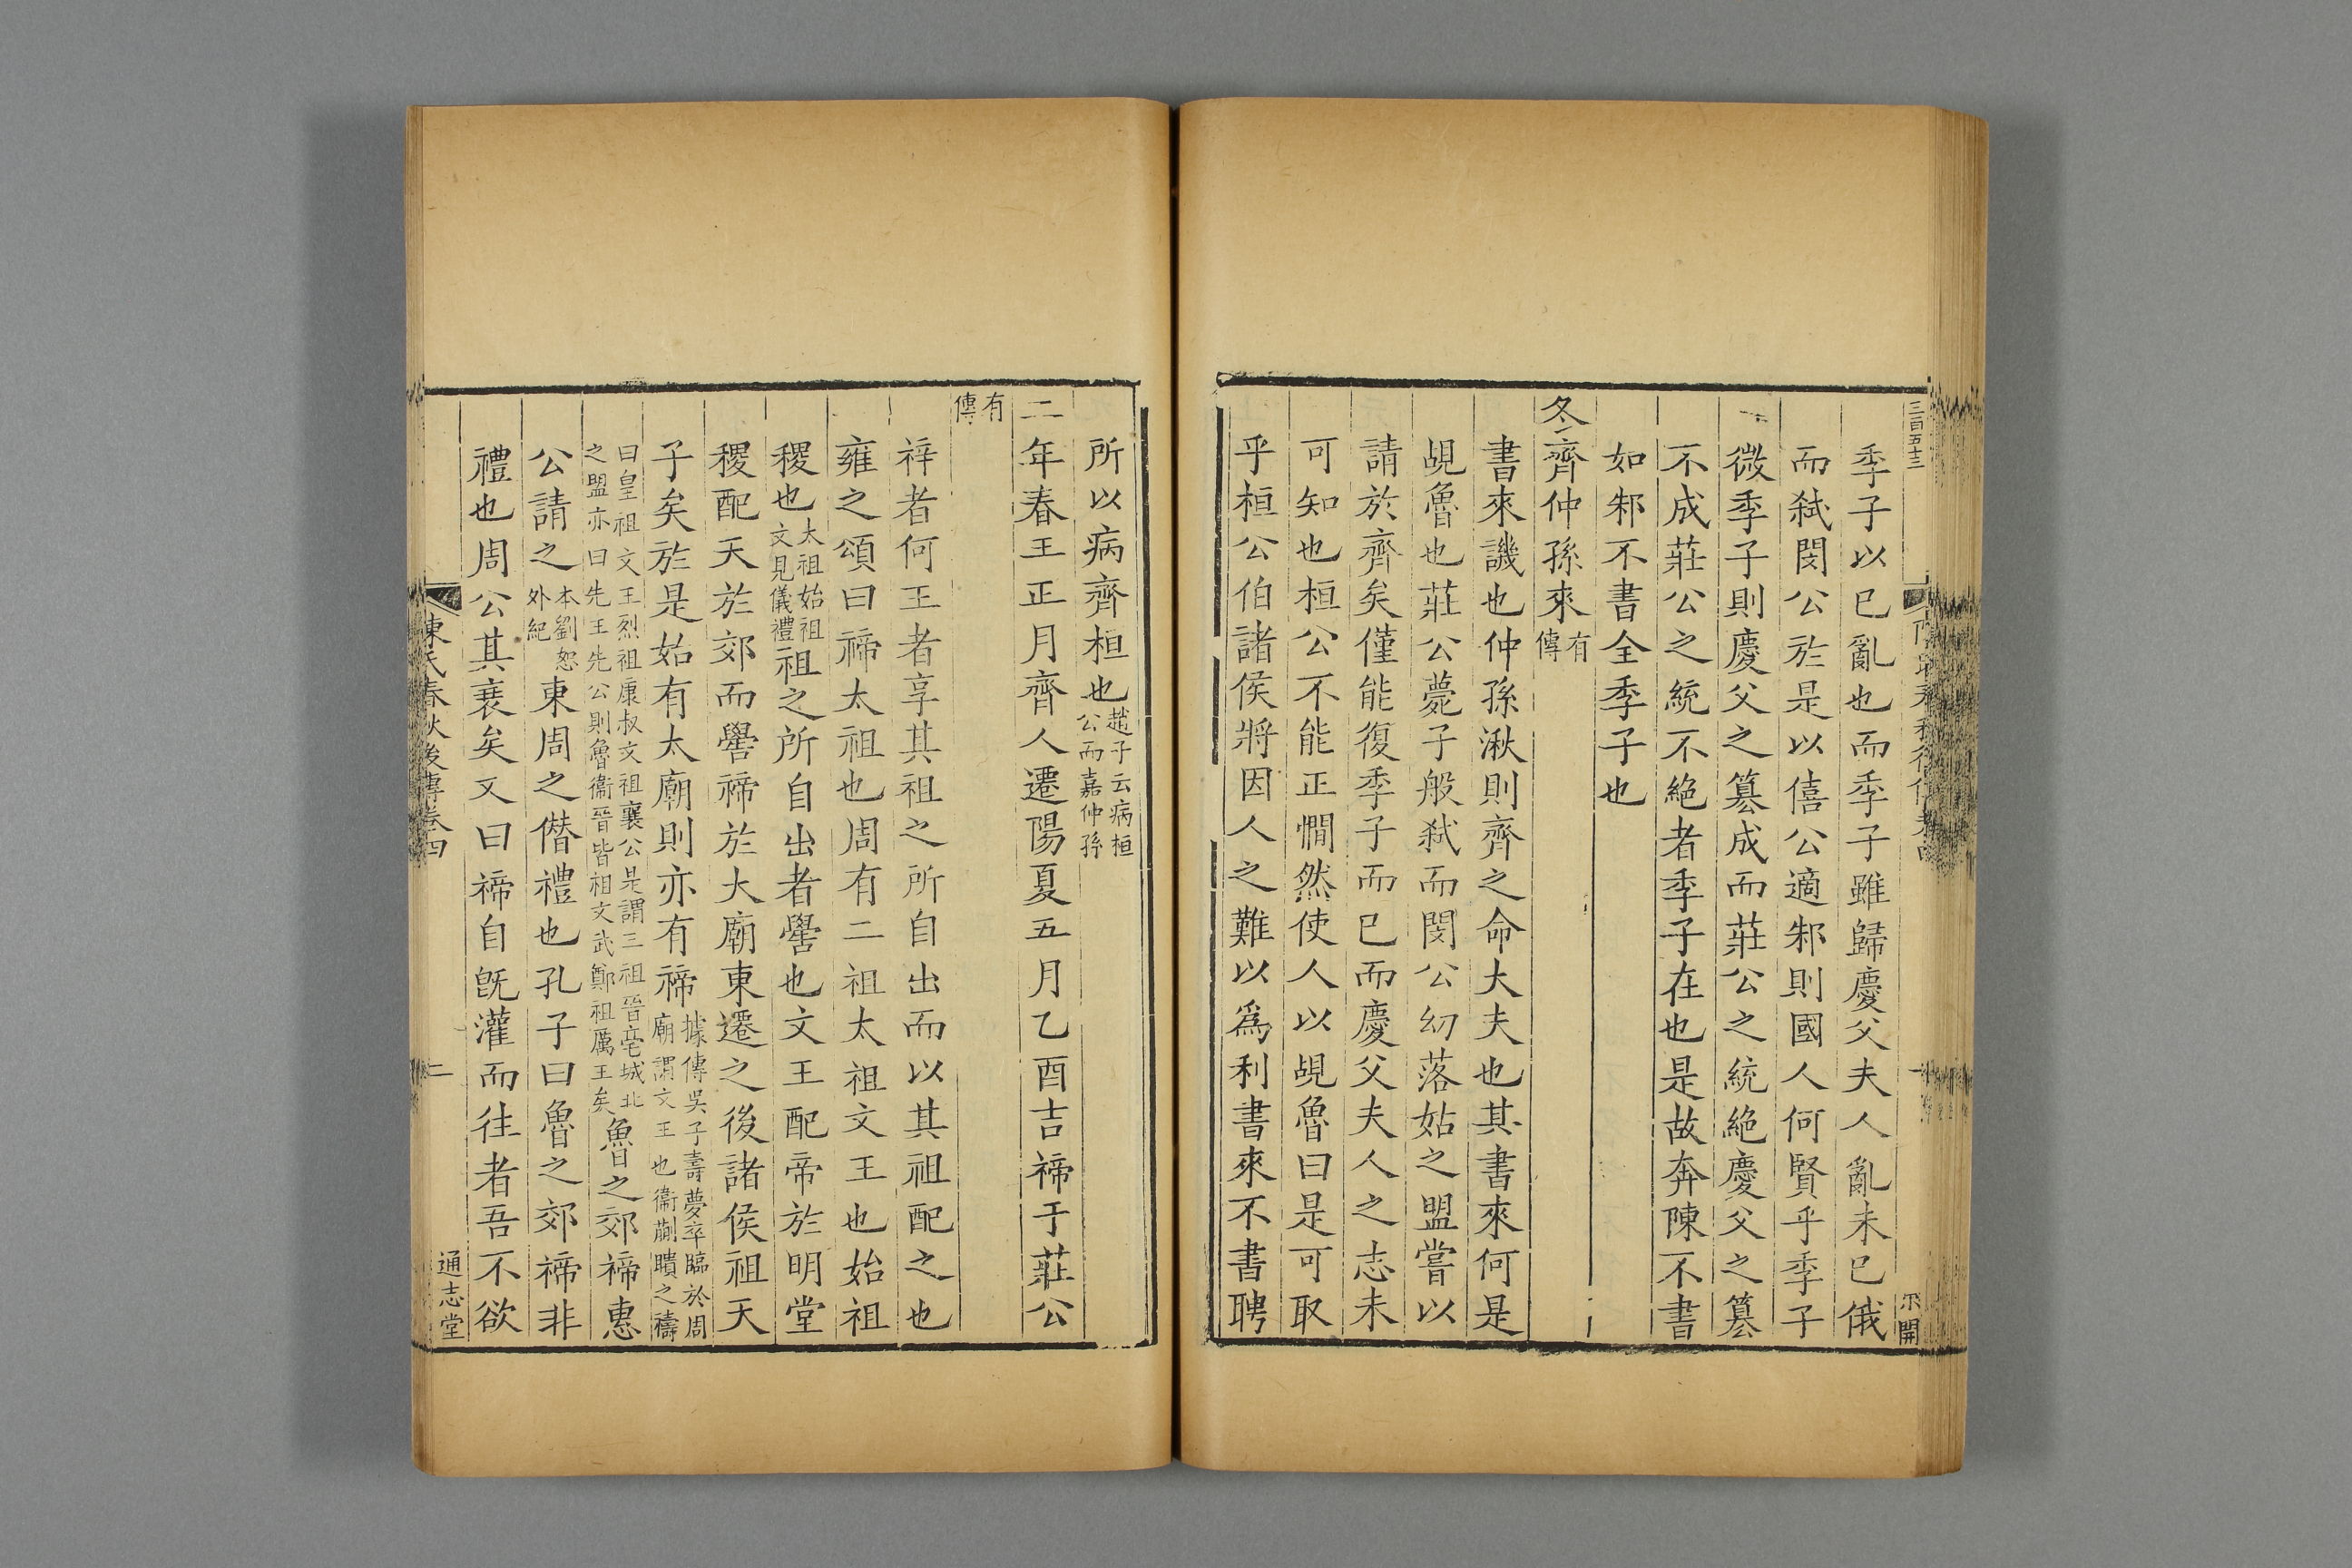 三百五十三
季子以已亂也而季子雖歸慶父夫人亂未已俄
而弑閔公於是以僖公適邾則國人何賢乎季子
微季子則慶父之簒成而莊公之統絶慶父之簒
不成莊公之統不絶者季子在也是故奔陳不書
如邾不書全季子也
冬齊仲孫來有傳
書來譏也仲孫湫則齊之命大夫也其書來何是
覘魯也莊公薨子般弑而閔公幼落姑之盟嘗以
請於齊矣僅能復季子而已而慶父夫人之志未
可知也桓公不能正憪然使人以覘魯曰是可取
乎桓公伯諸侯將因人之難以爲利書來不書聘
所以病齊桓也趙子云病桓公而嘉仲孫
二年春王正月齊人遷陽夏五月乙酉吉禘于莊公
有傳
禘者何王者享其祖之所自出而以其祖配之也
雍之頌曰禘太祖也周有二祖太祖文王也始祖
稷也太祖始祖文見儀禮祖之所自出者嚳也文王配帝於明堂
稷配天於郊而嚳禘於大廟東遷之後諸侯祖天
子矣於是始有太廟則亦有禘據傳吳子壽夢卒臨於周廟謂文王也衞蒯聵之禱
曰皇祖文王烈祖康叔文祖襄公是謂三祖晉亳城北之盟亦曰先王先公則魯衞晉皆祖文武鄭祖厲王矣魯之郊禘惠
公請之本劉恕外紀東周之僭禮也孔子曰魯之郊禘非
禮也周公其衰矣又曰禘自旣灌而往者吾不欲
陳氏春秋後傳卷四
二
通志堂